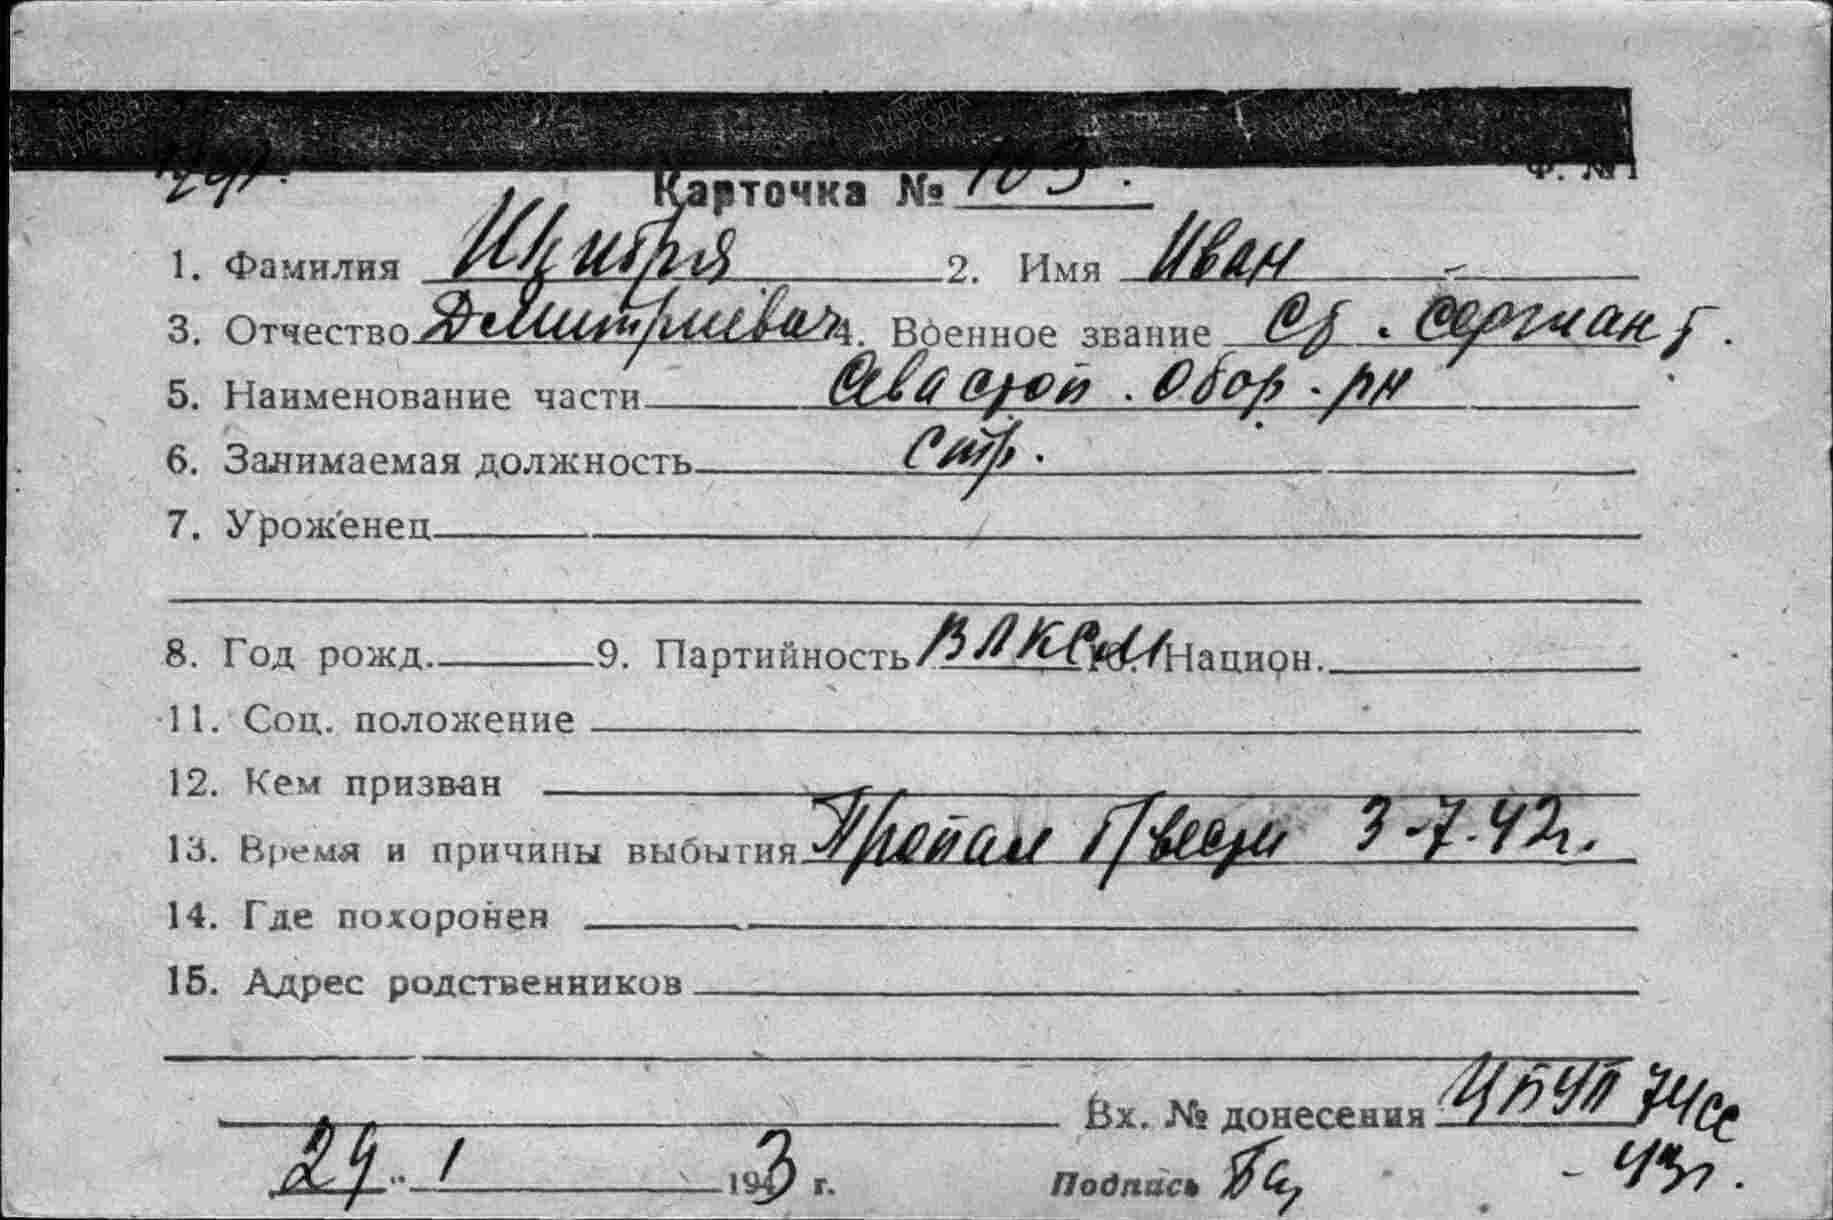 Ф. № 1
Карточка № 103.
1. Фамилия Шкибря 2. Имя Иван
3. Отчество Дмитриевич 4. Военное звание ст. сержант.
5. Наименование части Севастоп. обор. рн
6. Занимаемая должность стр.
7. Уроженец
8. Год рожд. 9. Партийность ВЛКСМ Национ.
11. Соц. положение
12. Кем призван
13. Время и причины выбытия Пропал б/вести 3-7-42г.
14. Где похоронен
15. Адрес родственников
Вх. № донесения ЦБУП 74сс
29. 1 1943 г. Подпись - 43г.